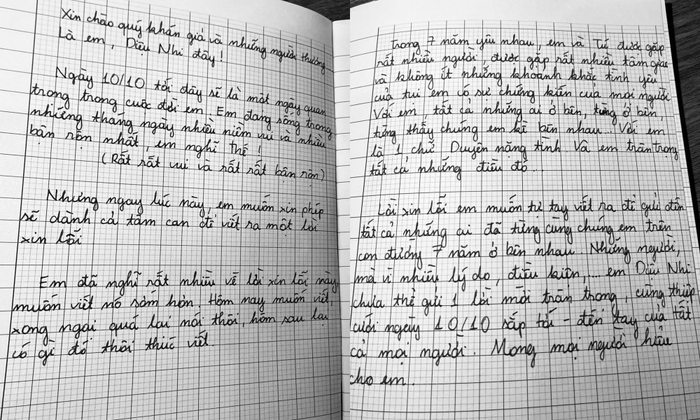 Xin chào quý khán giả và những người thương
Là em, Diệu Nhi đây!
Ngày 10/10 tới đây sẽ là một ngày quan
trọng trong cuộc đời em. Em đang sống trong
những tháng ngày nhiều niềm vui và nhiều
bận rộn nhất, em nghĩ thế!
(Rất rất vui và rất rất bận rộn)
Nhưng ngay lúc này, em muốn xin phép
sẽ dành cả tâm can để viết ra một lời
xin lỗi
Em đã nghĩ rất nhiều về lời xin lỗi này
muốn viết nó sớm hơn. Hôm nay muốn viết,
xong ngại quá lại nói thôi, hôm sau lại
có gì đó thôi thúc viết.
Trong 7 năm yêu nhau, em và Tú được gặp
rất nhiều người được gặp rất nhiều tâm giao
và không ít những khoảnh khắc tình yêu
của tui em có sự chứng kiến của mọi người
Với em tất cả những ai ở bên, từng ở bên,
từng thấy chúng em kề bên nhau. Với em
là 1 chữ Duyên nặng tình Và em trân trọng
tất cả những điều đó...
Lời xin lỗi em muốn tự tay viết ra để gửi đến
tất cả những ai đã từng cùng chúng em trên
con đường 7 năm ở bên nhau. Những người,
mà vì nhiều lý do, điều kiện.... em Diệu Nhi
chưa thể gửi 1 lời mời trân trọng, cùng thiệp
cưới ngày 10/10 sắp tới - đến tay của tất
cả mọi người. Mong mọi người hiểu
cho em.